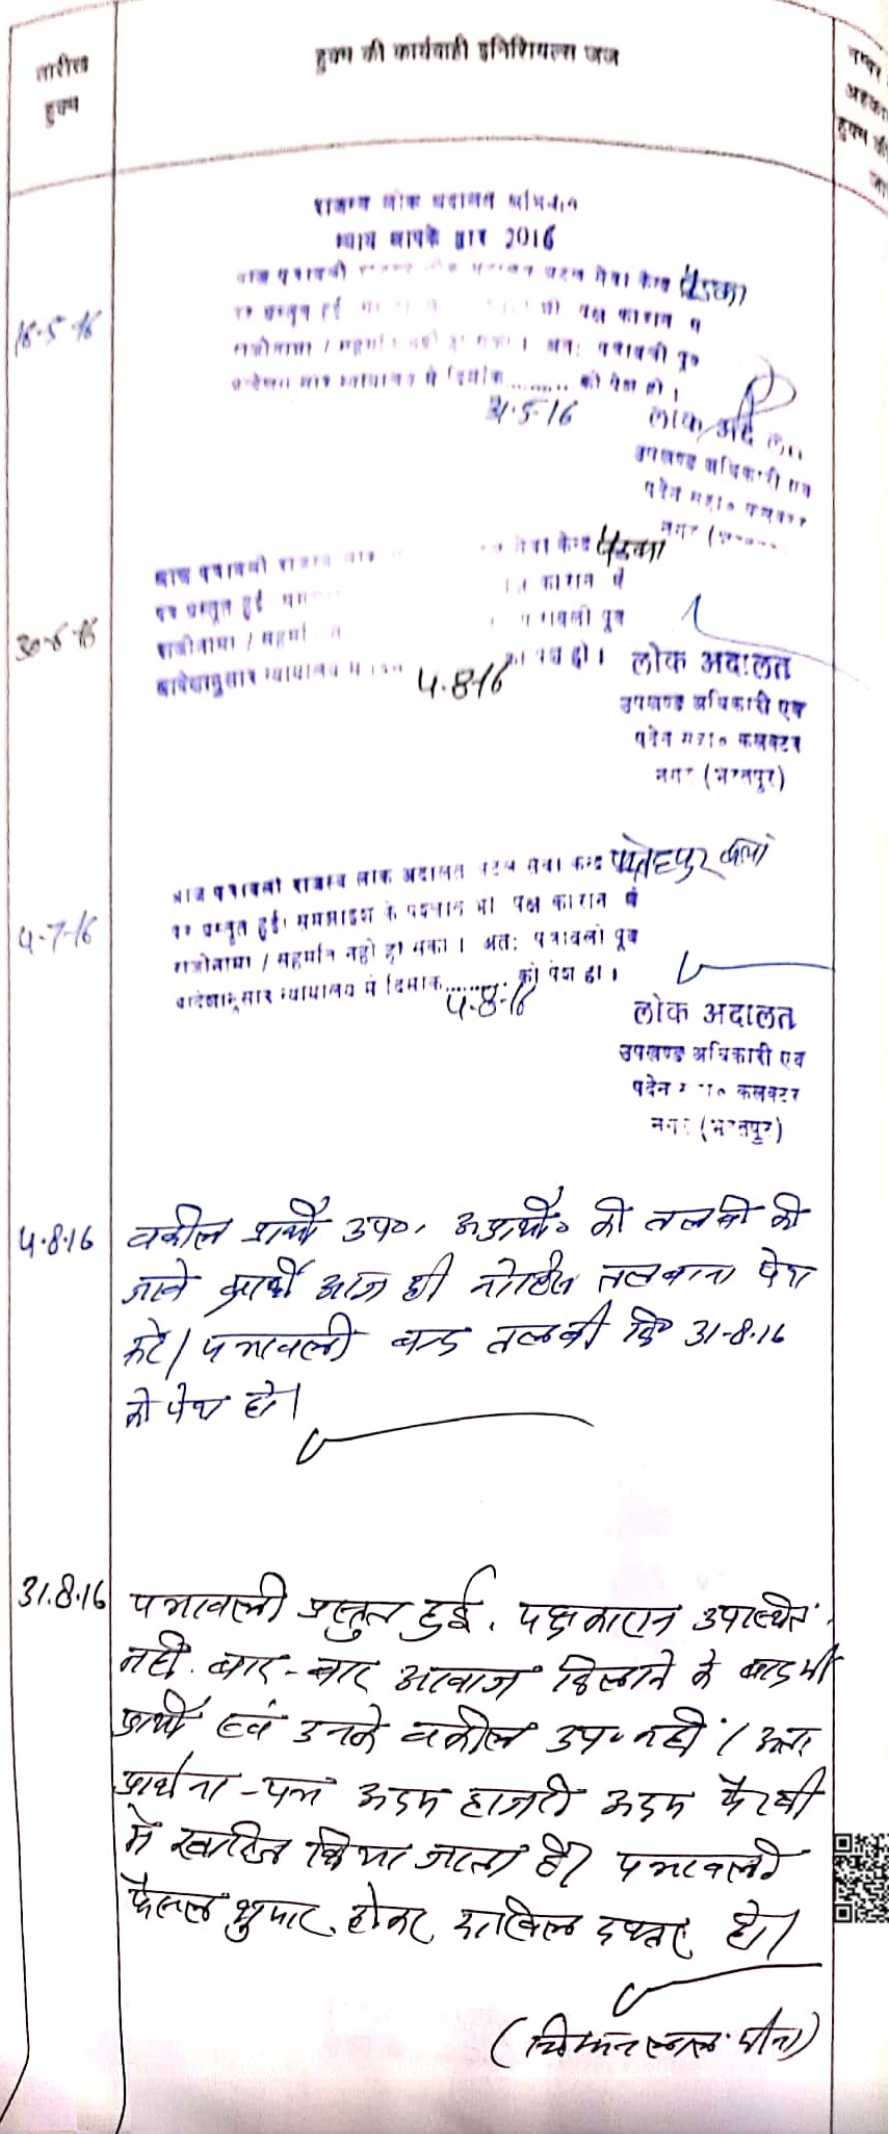 तारीख
हुक्म
हुक्म की कार्यवाही इनिशियल्स जज
नम्बर
अहका
हुक्म की
राजस्व लोक अदालत अभियान
न्याय आपके द्वार 2016
16-5-16
आज पत्रावली राजस्व लोक अदालत अटल सेवा केन्द्र
पर प्रस्तुत हुई भी पक्ष कारान में
राजीनामा / सहमति नहीं हो सका । अतः पत्रावली पूर्व
न्यायालय में दिनांक ........ को पेश हो ।
31-5-16
लोक अदालत
उपखण्ड अधिकारी एवं
पदेन सहा० कलक्टर
नगर
30-6-16
आज पत्रावली राजस्व लोक सेवा केन्द्र
पर प्रस्तुत हुई कारान में
राजीनामा / सहमति पत्रावली पूर्व
आदेशानुसार न्यायालय में का पेश हो ।
4.8.16
लोक अदालत
उपखण्ड अधिकारी एवं
पदेन सहा० कलक्टर
नगर (भरतपुर)
4-7-16
आज पत्रावली राजस्व लोक अदालत अटल सेवा केन्द्र फतेहपुर कलां
पर प्रस्तुत हुई। समझाइश के पश्चात भी पक्ष कारान में
राजीनामा / सहमति नहीं हो सका । अतः पत्रावली पूर्व
आदेशानुसार न्यायालय में दिनांक ........ को पेश हो ।
4-8-16
लोक अदालत
उपखण्ड अधिकारी एवं
पदेन सहा० कलक्टर
नगर (भरतपुर)
4.8.16
वकील प्रार्थी उप०, अप्रार्थी० की तलबी की
जावे प्रार्थी आज ही नोटिस तलबाना पेश
करे। पत्रावली बाद तलबी दि० 31-8-16
को पेश हो।
31.8.16
पत्रावली प्रस्तुत हुई. पक्षकारान उपस्थित
नही. बार-बार आवाज दिलाने के बाद भी
प्रार्थी एवं उनके वकील उप० नहीं। अतः
प्रार्थना-पत्र अदम हाजरी अदम पैरवी
में खारिज किया जाता है। पत्रावली
फैसल शुमार होकर दाखिल दफ्तर हो।
(चिमनलाल मीना)